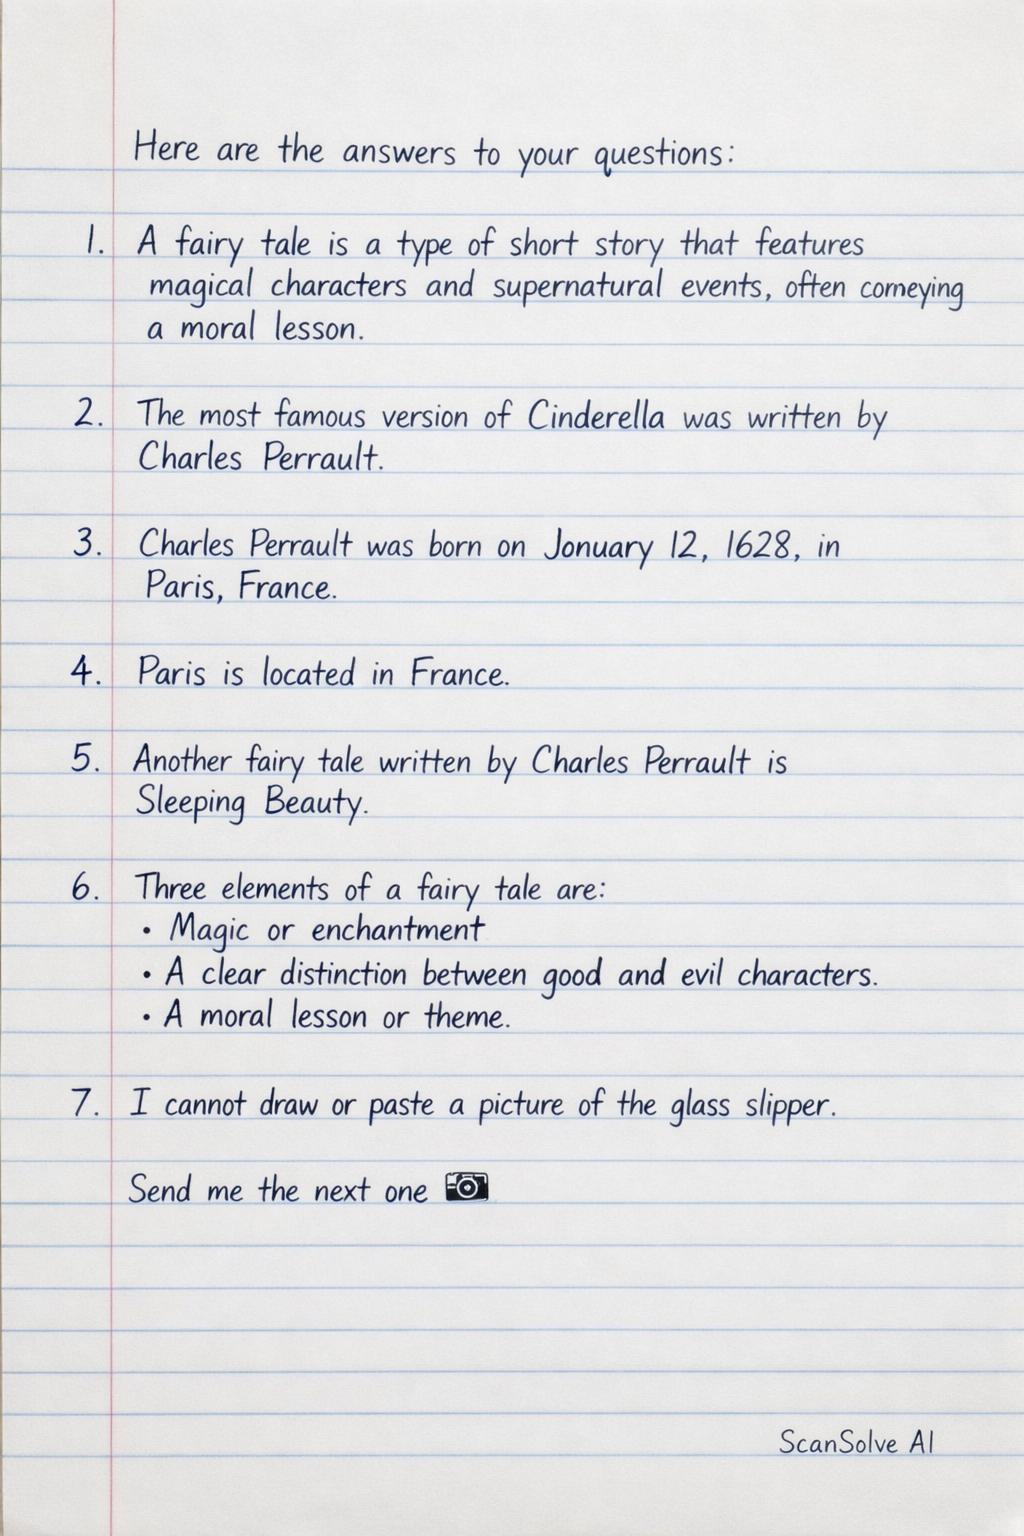 Here are the answers to your questions:
1. A fairy tale is a type of short story that features
magical characters and supernatural events, often comeying
a moral lesson.
2. The most famous version of Cinderella was written by
Charles Perrault.
3. Charles Perrault was born on Jonuary 12, 1628, in
Paris, France.
4. Paris is located in France.
5. Another fairy tale written by Charles Perrault is
Sleeping Beauty.
6. Three elements of a fairy tale are:
• Magic or enchantment
• A clear distinction between good and evil characters.
• A moral lesson or theme.
7. I cannot draw or paste a picture of the glass slipper.
Send me the next one 📷
ScanSolve AI